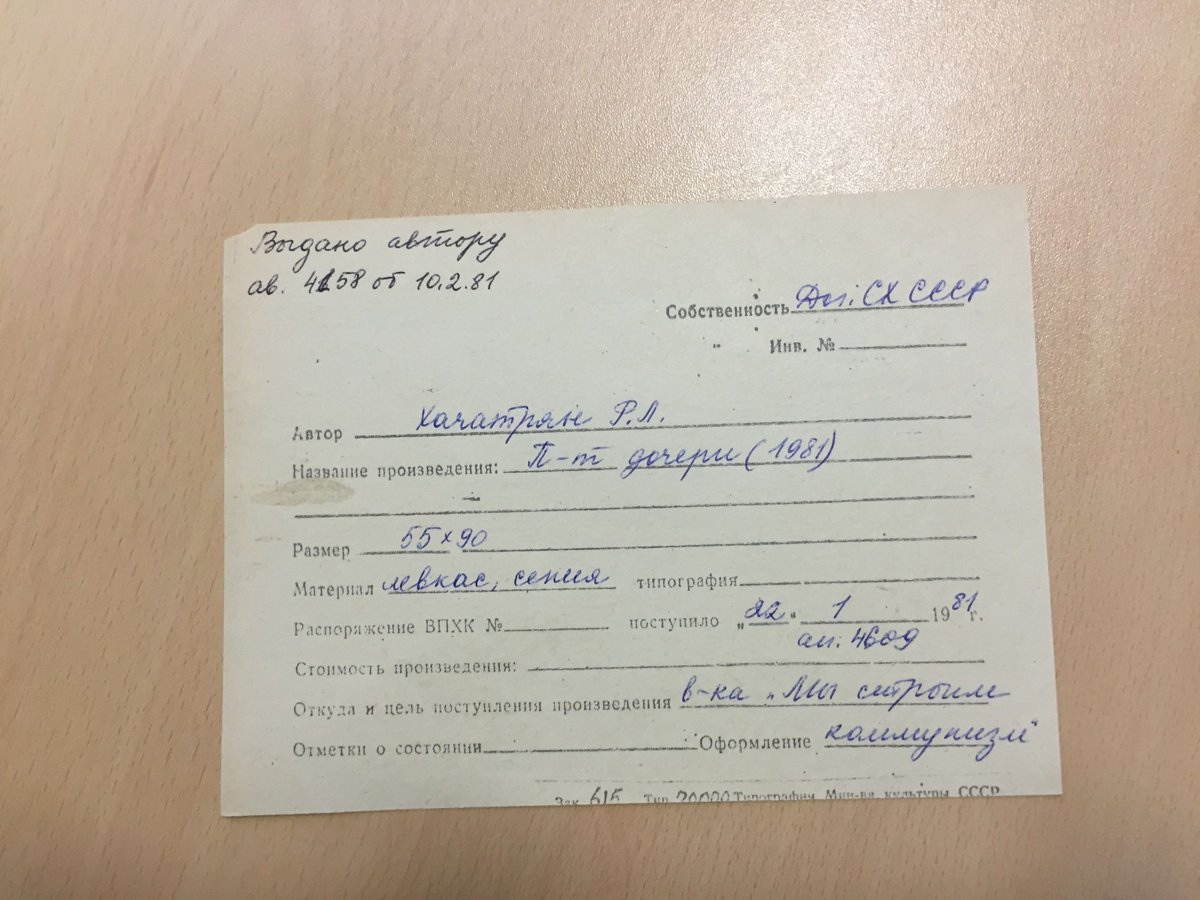 Выдано автору
ав. 4158 от 10.2.81
Собственность Дог. СХ СССР
" Инв. №
Автор Хачатрян Р.Л.
Название произведения: П-т дочери (1981)
Размер 55х90
Материал левкас, сепия типография
Распоряжение ВПХК № поступило „22" 1 1981 г.
ап. 4609
Стоимость произведения:
Откуда и цель поступления произведения в-ка „Мы строим
Отметки о состоянии Оформление коммунизм"
Зак. 615 Тир. 20000 Типография Мин-ва культуры СССР